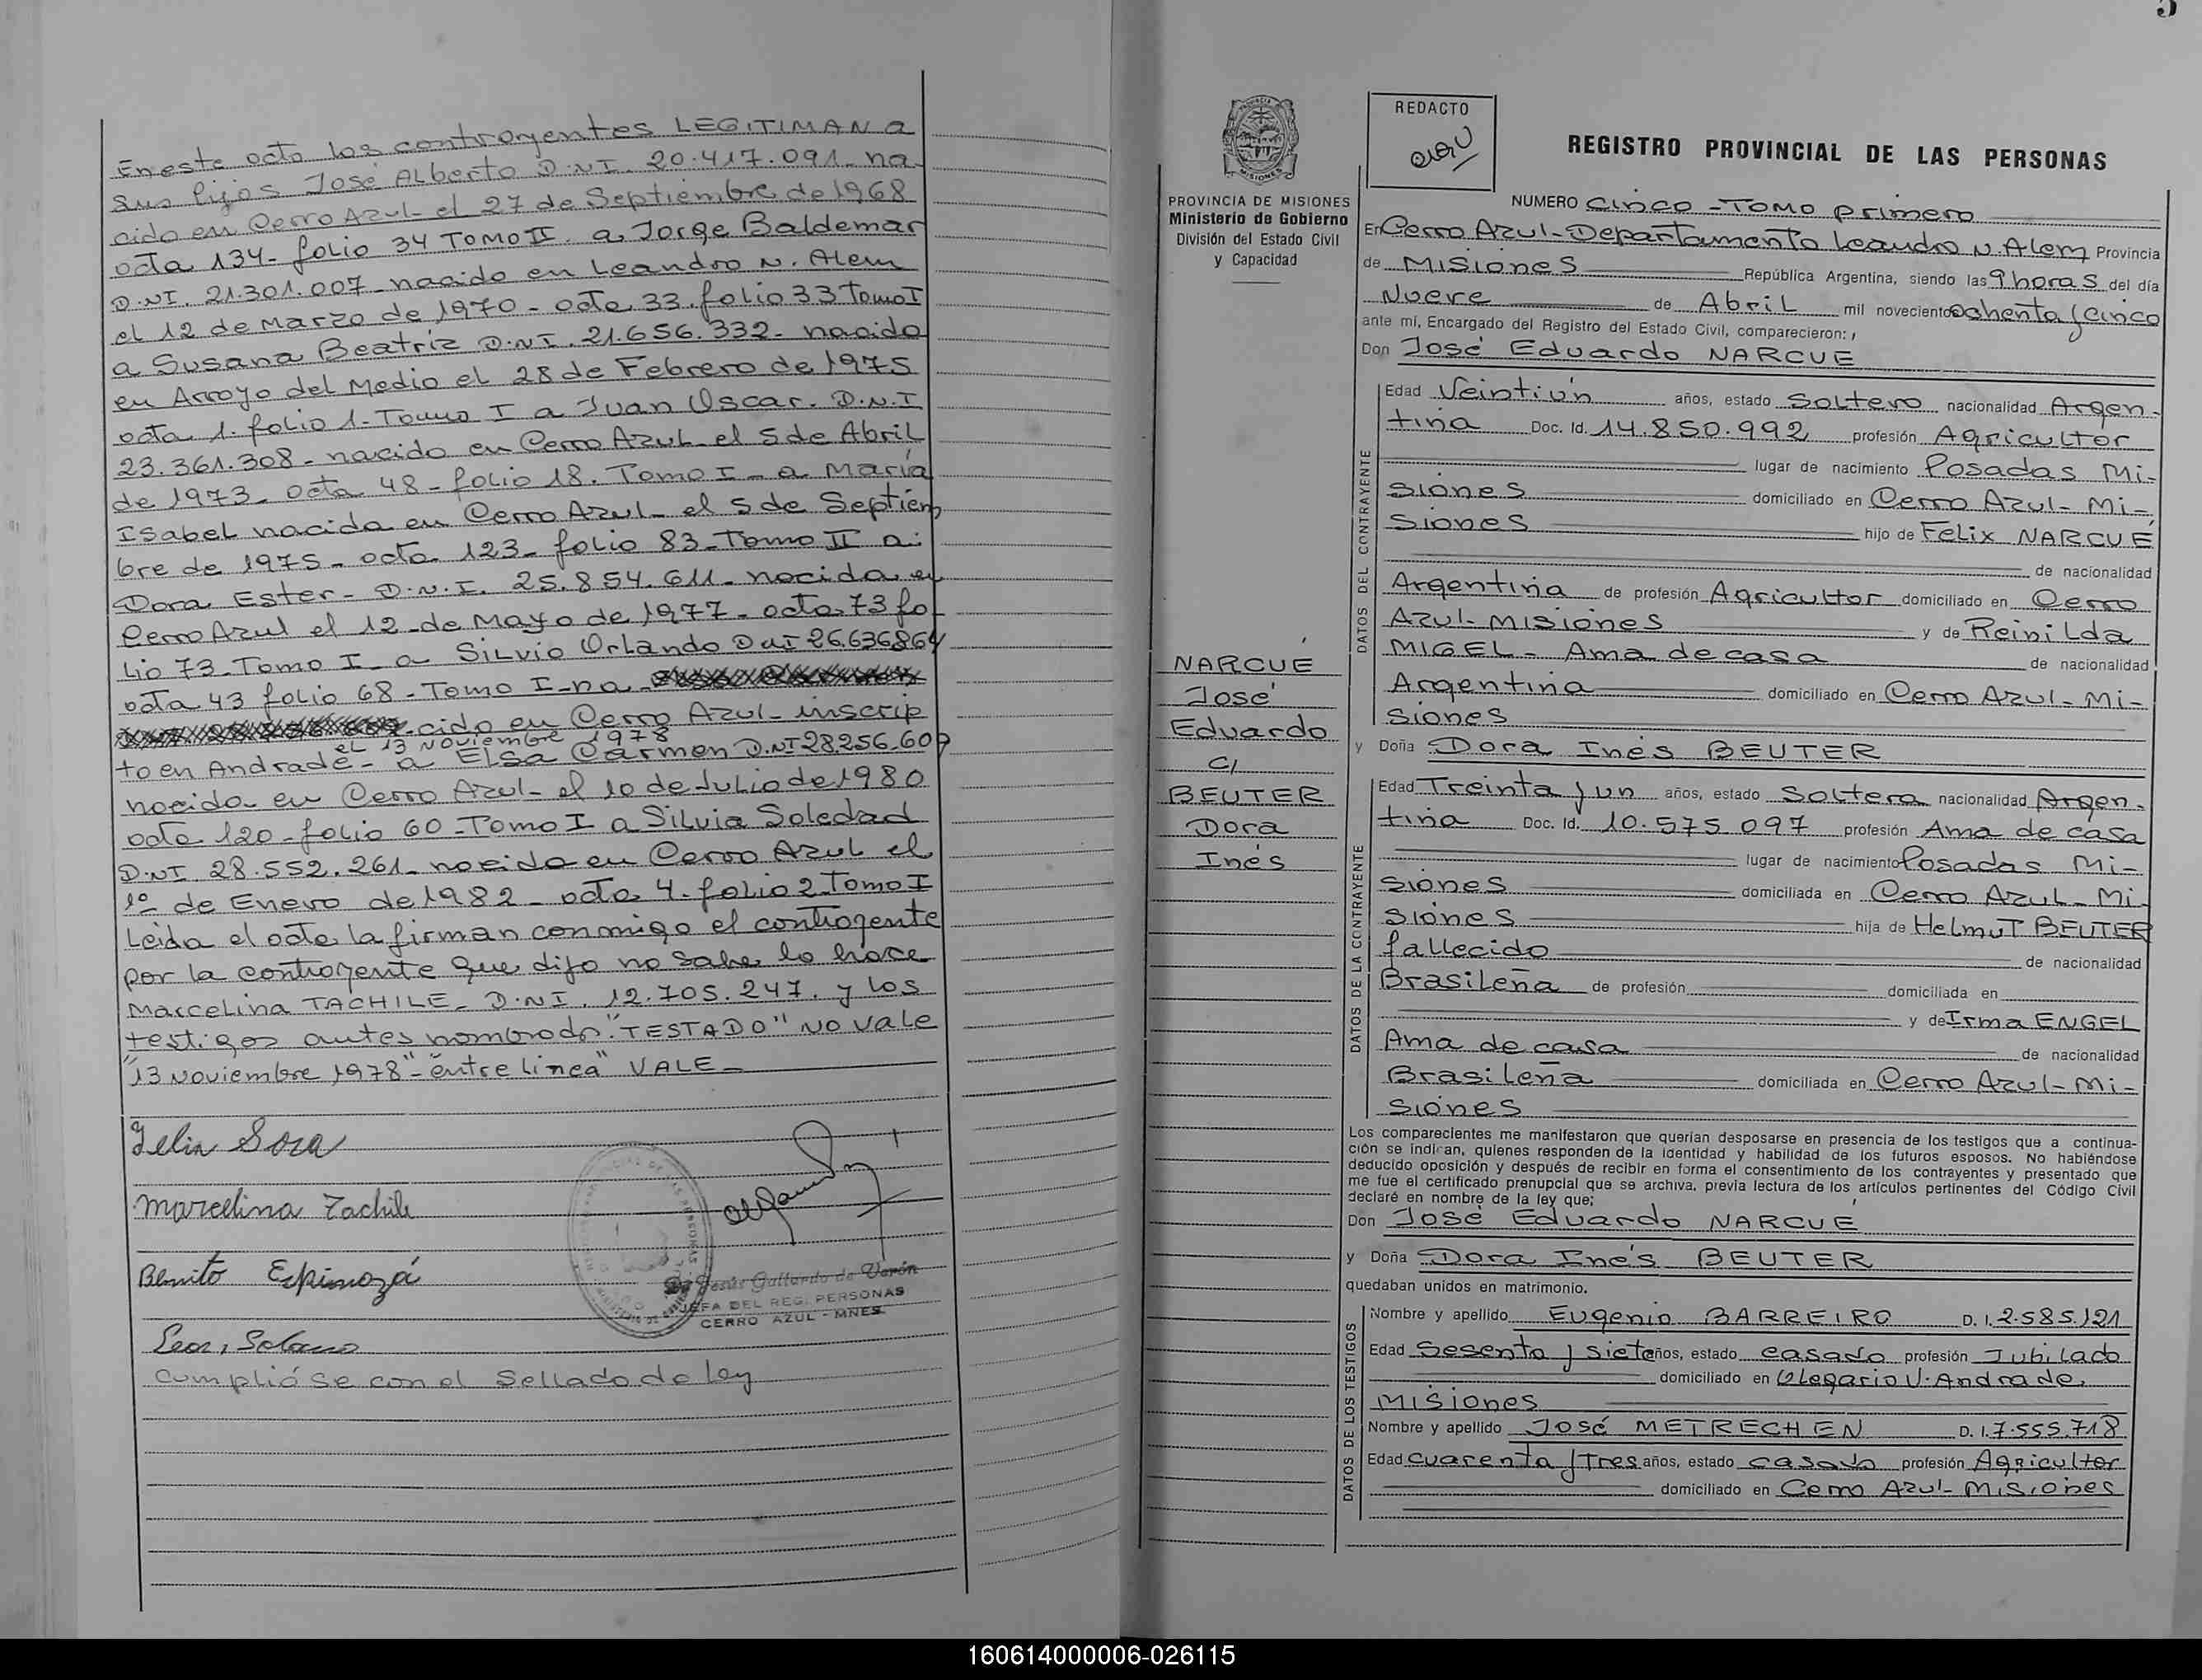 En este acto los contrayentes LEGITIMAN a
sus hijos José Alberto D.N.I. 20.417.091 - na
cido en Cerro Azul - el 27 de Septiembre de 1968
acta 134 - folio 34 Tomo II. a Jorge Baldemar
D.N.I. 21.301.007 - nacido en Leandro N. Alem
el 12 de Marzo de 1970 - acta 33. folio 33 Tomo I
a Susana Beatriz D.N.I. 21.656.332 - nacida
en Arroyo del Medio el 28 de Febrero de 1975
acta 1. folio 1 - Tomo I a Juan Oscar. D.N.I
23.361.308 - nacido en Cerro Azul - el 5 de Abril
de 1973 - acta 48 - folio 18. Tomo I - a María
Isabel nacida en Cerro Azul - el 5 de Septiem
bre de 1975 - acta 123 - folio 83 - Tomo II a:
Dora Ester - D.N.I. 25.854.611 - nacida en
Cerro Azul el 12 - de Mayo de 1977 - acta 73 fo
lio 73 - Tomo I - a Silvio Orlando DNI 26.636864
acta 43 folio 68 - Tomo I - na
cido en Cerro Azul - inscrip
el 13 noviembre 1978
to en Andrade - a Elsa Carmen D.NI 28.256.607
nacida en Cerro Azul - el 10 de Julio de 1980
acta 120 - folio 60 - Tomo I a Silvia Soledad
D.NI. 28.552.261 - nacida en Cerro Azul el
1º de Enero de 1982 - acta 4 - folio 2 Tomo I
Leída el acta la firman conmigo el contrayente
por la contrayente que dijo no sabe lo hace
Marcelina TACHILE - D.N.I. 12.705.247. y los
testigos antes nombrado. "TESTADO" NO VALE
"13 Noviembre 1978" - "entre linea" VALE -
Marcelina Tachile
Benito Espinoza
Jesús Gallardo de Verón
JEFA DEL REG. PERSONAS
CERRO AZUL - MNES.
Cumplióse con el Sellado de ley
REDACTO
REGISTRO PROVINCIAL DE LAS PERSONAS
PROVINCIA DE MISIONES
Ministerio de Gobierno
División del Estado Civil
y Capacidad
NARCUE
José
Eduardo
c/
BEUTER
Dora
Inés
NUMERO Cinco - Tomo primero
En Cerro Azul - Departamento Leandro N. Alem Provincia
de Misiones República Argentina, siendo las 9 horas del día
Nueve de Abril mil novecientos ochenta y cinco
ante mí, Encargado del Registro del Estado Civil, comparecieron:
Don José Eduardo NARCUE
DATOS DEL CONTRAYENTE
Edad Veintiún años, estado Soltero nacionalidad Argen-
tina Doc. Id. 14.850.992 profesión Agricultor
lugar de nacimiento Posadas Mi-
siones domiciliado en Cerro Azul - Mi-
siones hijo de Felix NARCUE
de nacionalidad
Argentina de profesión Agricultor domiciliado en Cerro
Azul - Misiones y de Reinilda
MIGEL - Ama de casa de nacionalidad
Argentina domiciliado en Cerro Azul - Mi-
siones
y Doña Dora Inés BEUTER
DATOS DE LA CONTRAYENTE
Edad Treinta y un años, estado Soltera nacionalidad Argen-
tina Doc. Id. 10.575.097 profesión Ama de casa
lugar de nacimiento Posadas Mi-
siones domiciliada en Cerro Azul - Mi-
siones hija de Helmut BEUTER
fallecido de nacionalidad
Brasileña de profesión domiciliada en
y de Irma ENGEL
Ama de casa de nacionalidad
Brasileña domiciliada en Cerro Azul - Mi-
siones
Los comparecientes me manifestaron que querían desposarse en presencia de los testigos que a continua-
ción se indican, quienes responden de la identidad y habilidad de los futuros esposos. No habiéndose
deducido oposición y después de recibir en forma el consentimiento de los contrayentes y presentado que
me fue el certificado prenupcial que se archiva, previa lectura de los artículos pertinentes del Código Civil
declaré en nombre de la ley que;
Don José Eduardo NARCUE
y Doña Dora Inés BEUTER
quedaban unidos en matrimonio.
DATOS DE LOS TESTIGOS
Nombre y apellido Eugenio BARREIRO D. I. 2.585.121
Edad Sesenta y siete años, estado casado profesión Jubilado
domiciliado en Olegario V. Andrade.
Misiones
Nombre y apellido José METRECHEN D. I. 7.555.718
Edad Cuarenta y Tres años, estado casado profesión Agricultor
domiciliado en Cerro Azul - Misiones
160614000006-026115